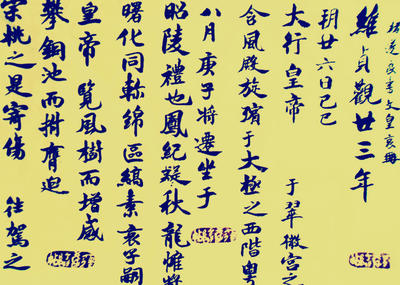 褚遂良書文皇哀冊
維貞觀廿三年
朔廿六日己巳
大行皇帝 于翠微宮之
含風殿旋殯于大極之西階粤
八月庚子將遷坐于
昭陵禮也鳳紀凝秋龍帷將
曙化同軫綿區縞素哀子嗣
皇帝 覽風樹而增感
攀銅池而拊膺迫
宗祧之是寄傷 往駕之